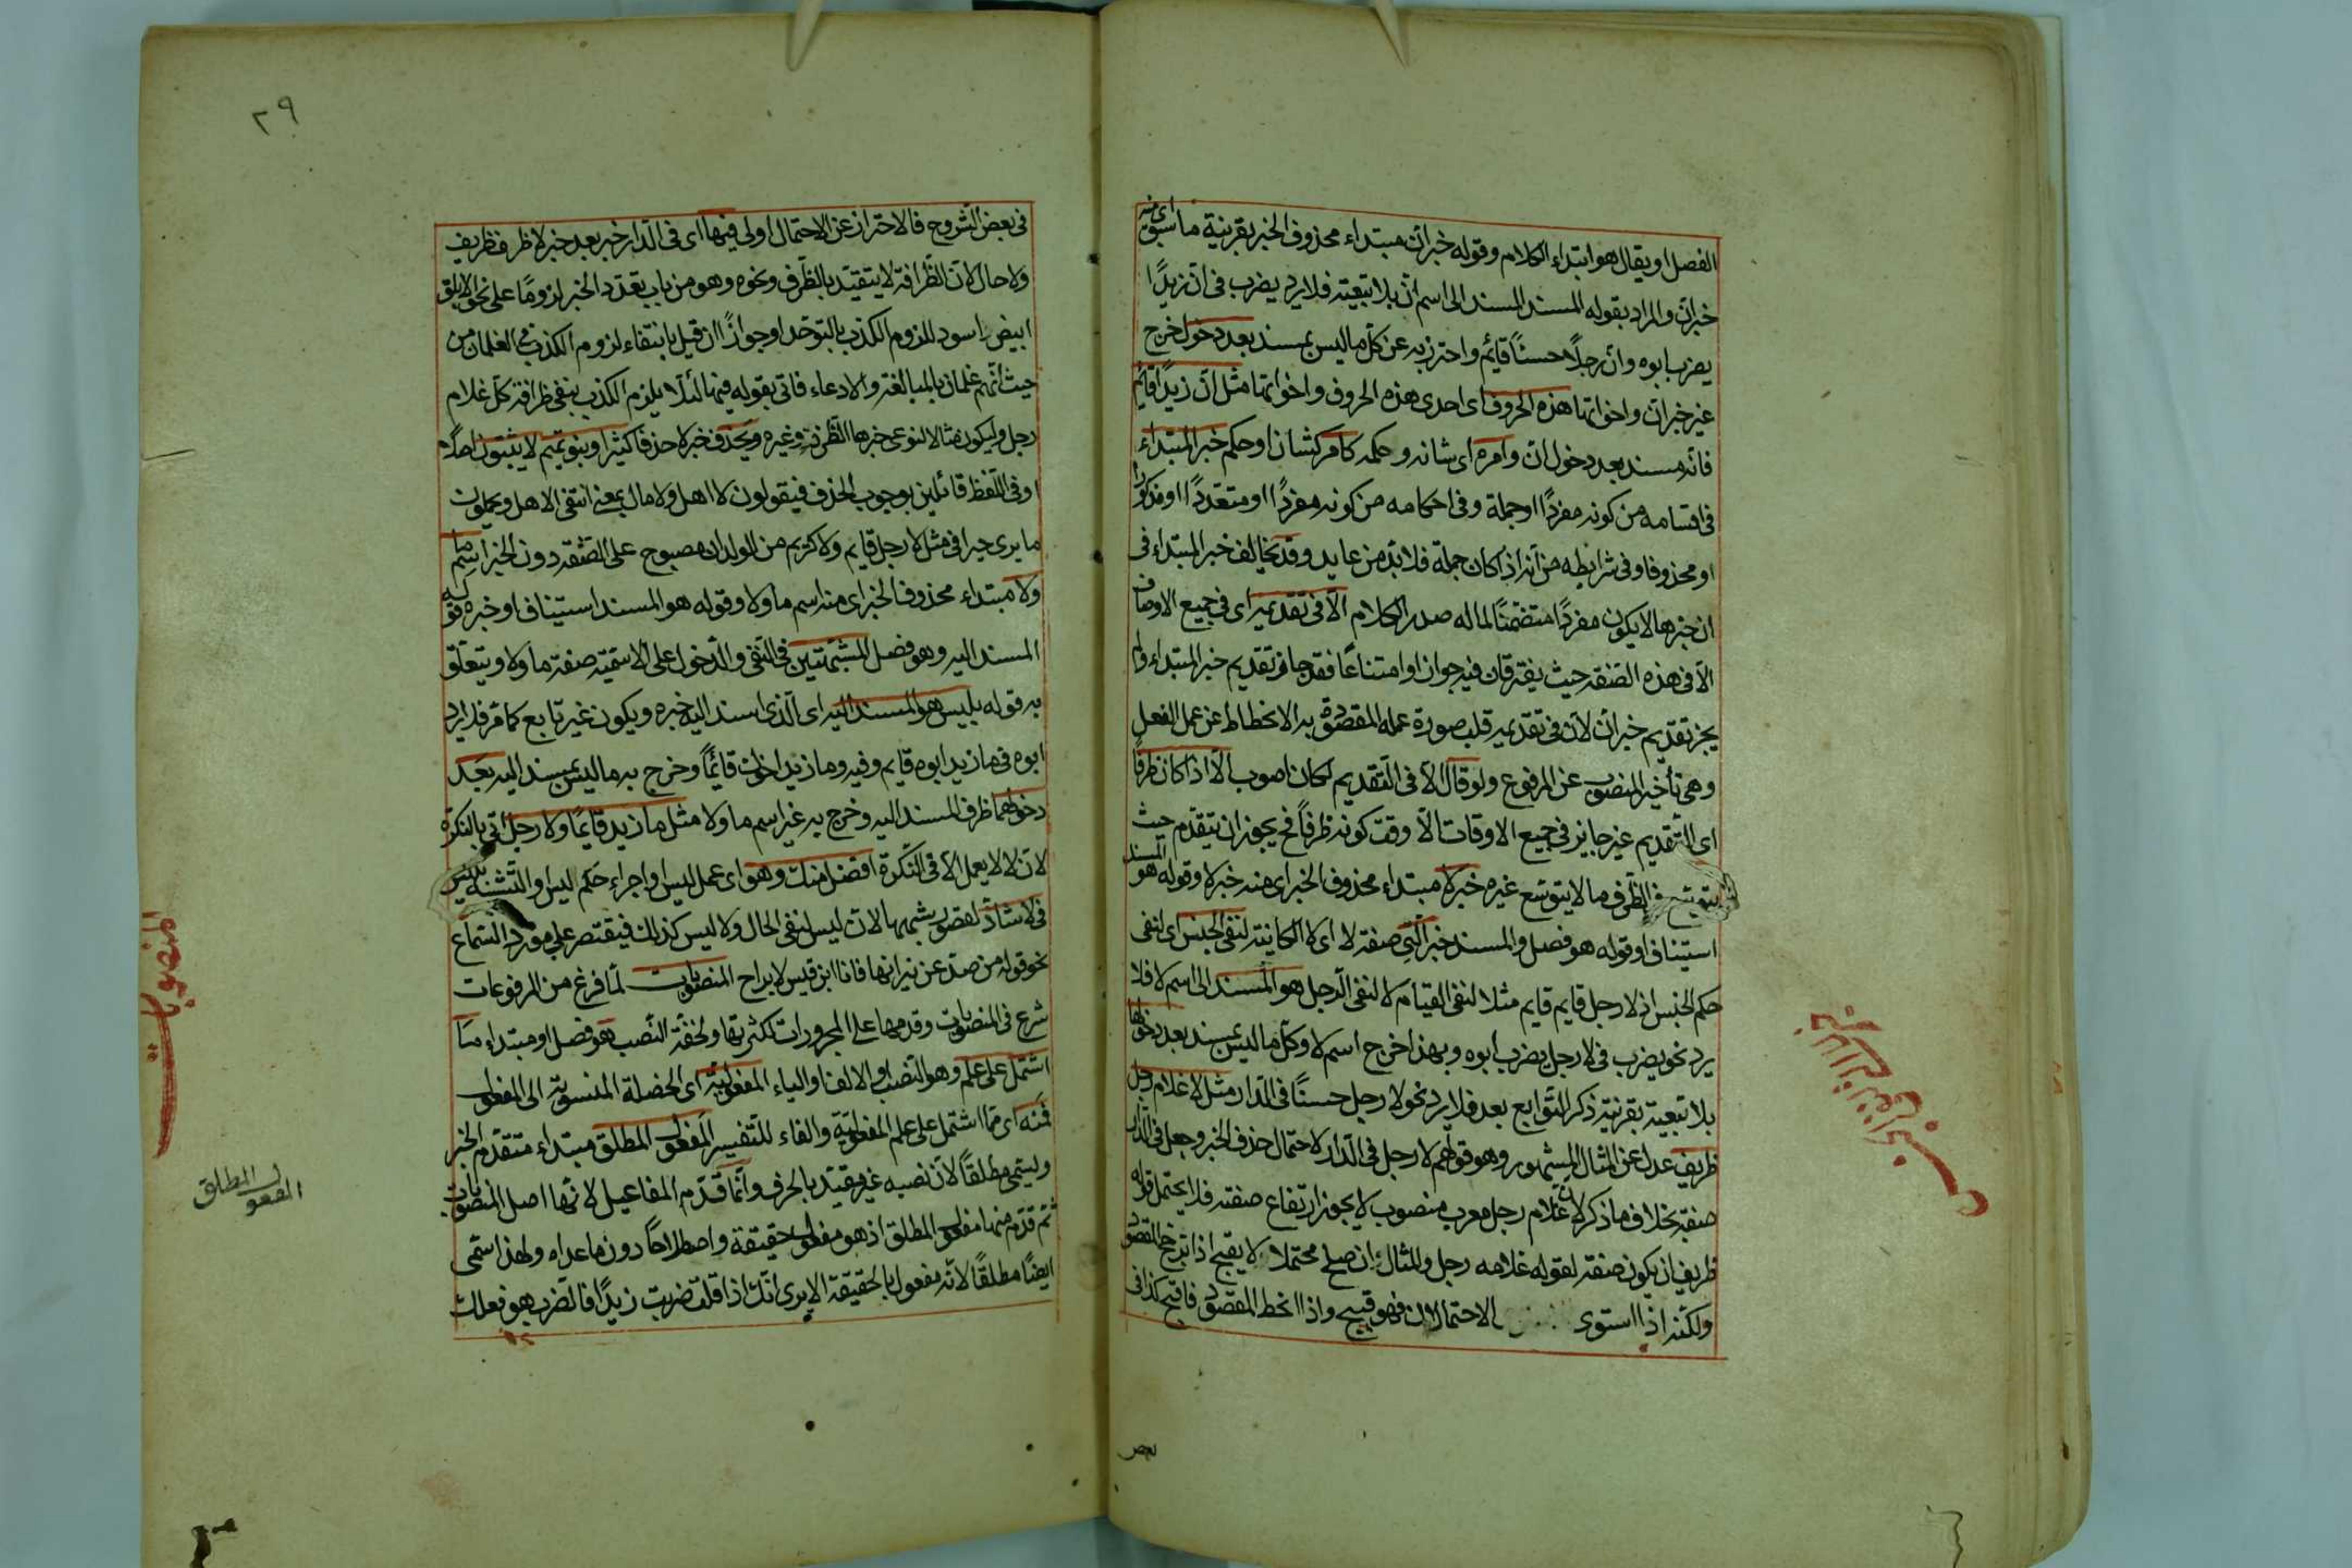 الفصل او يقال هو ابتداء الكلام وقوله خبر ان مبتداء محذوف الخبر بقرينة ما سبق اى منه
خبر ان والمراد بقوله المسند المسند الى اسم ان بلا تبعيته فلا يرد يضرب فى ان زيدًا
يضرب ابوه وان رجلًا حسنًا قائم واحترز به عن كل ما ليس بمسند بعد دخول خرج
غير خبر ان واخواتها هذه الحروف اى احدى هذه الحروف واخواتها مثل ان زيدًا قائم
فانه مسند بعد دخول ان وامره اى شانه وحكمه كامر كشان او حكم خبر المبتداء
فى اقسامه من كونه مفردًا او جملة وفى احكامه من كونه مفردًا او متعددًا او مذكورا
او محذوفا وفى شرايطه من انه اذا كان جملة فلا بد من عايد وقد يخالف خبر المبتداء فى
ان خبرها لا يكون مفردًا متضمنًا لما له صدر الكلام الا فى تقديمه اى فى جميع الاوصاف
الا فى هذه الصفة حيث يفترقان فيه جوازا وامتناعًا فقد جاز تقديم خبر المبتداء ولم
يجز تقديم خبر ان لان فى تقديمه قلب صورة عمله المقصودة به الانحطاط عن عمل الفعل
وهى تأخير المنصوب عن المرفوع ولو قال الا فى التقديم لكان اصوب الا اذا كان ظرفًا
اى التقديم غير جايز فى جميع الاوقات الا وقت كونه ظرفًا فح يجوز ان يتقدم حيث
يتوسع فى الظرف ما لا يتوسع غيره خبر لا مبتداء محذوف الخبر اى منه خبر لا وقوله هو المسند
استيناف او قوله هو فصل والمسند خبر التى صفة لا اى لا الكاينة لنفى الجنس اى لنفى
حكم الجنس اذ لا رجل قايم قايم مثلا لنفى القيام لا لنفى الرجل هو المسند الى اسم لا فلا
يرد نحو يضرب فى لا رجل يضرب ابوه وبهذا خرج اسم لا وكل ما ليس بمسند بعد دخولها
بلا تبعية بقرينة ذكر التوابع بعد فلا يرد نحو لا رجل حسنًا فى الدار مثل لا غلام رجل
ظريف عدل عن المثال المشهور وهو قولهم لا رجل فى الدار لاحتمال حذف الخبر وجعل فى الدار
صفة بخلاف ما ذكر لان غلام رجل معرب منصوب لا يجوز ارتفاع صفته فلا يحتمل قوله
ظريف ان يكون صفة لقوله غلامه رجل والمثال ان صلح محتملا لا يقبح اذا ترجح المقصود
ولكنه اذا استوى الاحتمالان فهو قبيح واذا انحط المقصود فاقبح كذا فى
بعض
خبر
٢٩
فى بعض الشروح فالاحتراز عن الاحتمال اولى فيها اى فى الدار خبر بعد خبر لا ظرف ظريف
ولا حال لان الظرافة لا يتقيد بالظرف ونحوه وهو من باب تعدد الخبر لزومًا على نحو الابلق
ابيض اسود للزوم الكذب بالتوحد او جوازًا ان قيل بانتفاء لزوم الكذب فى الغلمان من
حيث انهم غلمان بالمبالغة والادعاء فاتى بقوله فيها لئلا يلزم الكذب بنفى ظرافة كل غلام
رجل وليكون مثالا لنوعى خبرها الظرف وغيره ويحذف خبر لا حذفا كثيرا وبنو تميم لا يثبتون اصلًا
او فى اللفظ قائلين بوجوب الحذف فيقولون لا اهل ولا مال بمعنى انتفى الاهل ويحملون
ما يرى خبرا فى مثل لا رجل قايم ولا كريم من الولدان مصبوح على الصفة دون الخبر اسم ما
ولا مبتداء محذوف الخبر اى منه اسم ما ولا وقوله هو المسند استيناف او خبره قوله
المسند اليه وهو فصل المشبهتين فى النفى والدخول على الاسمية صفة ما ولا ويتعلق
به قوله بليس هو المسند اليه اى الذى اسند اليه خبره ويكون غير تابع كما مر فلا يرد
ابوه فى ما زيد ابوه قايم وفيه وما زيد اخوك قائمًا وخرج به ما ليس بمسند اليه بعد
دخولهما ظرف المسند اليه وخرج به غير اسم ما ولا مثل ما زيد قايمًا ولا رجل اتى بالنكرة
لان لا لا يعمل الا فى النكرة افضل منك وهو اى عمل ليس او اجراء حكم ليس والتشبه بليس
فى لا شاذ لقصور شبهها لان ليس لنفى الحال ولا ليس كذلك فيقتصر على مورد السماع
نحو قوله من صد عن نيرانها فانا ابن قيس لا براح المنصوبات لما فرغ من المرفوعات
شرع فى المنصوبات وقدمها على المجرورات لكثرتها ولخفة النصب هو فصل او مبتداء ما
اشتمل على علم وهو النصب والالف والياء المفعولية اى الخصلة المنسوبة الى المفعول
فمنه اى مما اشتمل على علم المفعولية والفاء للتفسير المفعول المطلق مبتداء متقدم الخبر
ويسمى مطلقًا لان نصبه غير مقيد بالحرف وانما قدم المفاعيل لانها اصل المنصوبات
ثم قدم منها مفعول المطلق اذ هو مفعول حقيقة واصطلاحًا دون ما عداه ولهذا سمى
ايضًا مطلقًا لانه مفعول بالحقيقة الا يرى انك اذا قلت ضربت زيدًا فالضرب هو فعلك
المنصوبات
المفعول المطلق